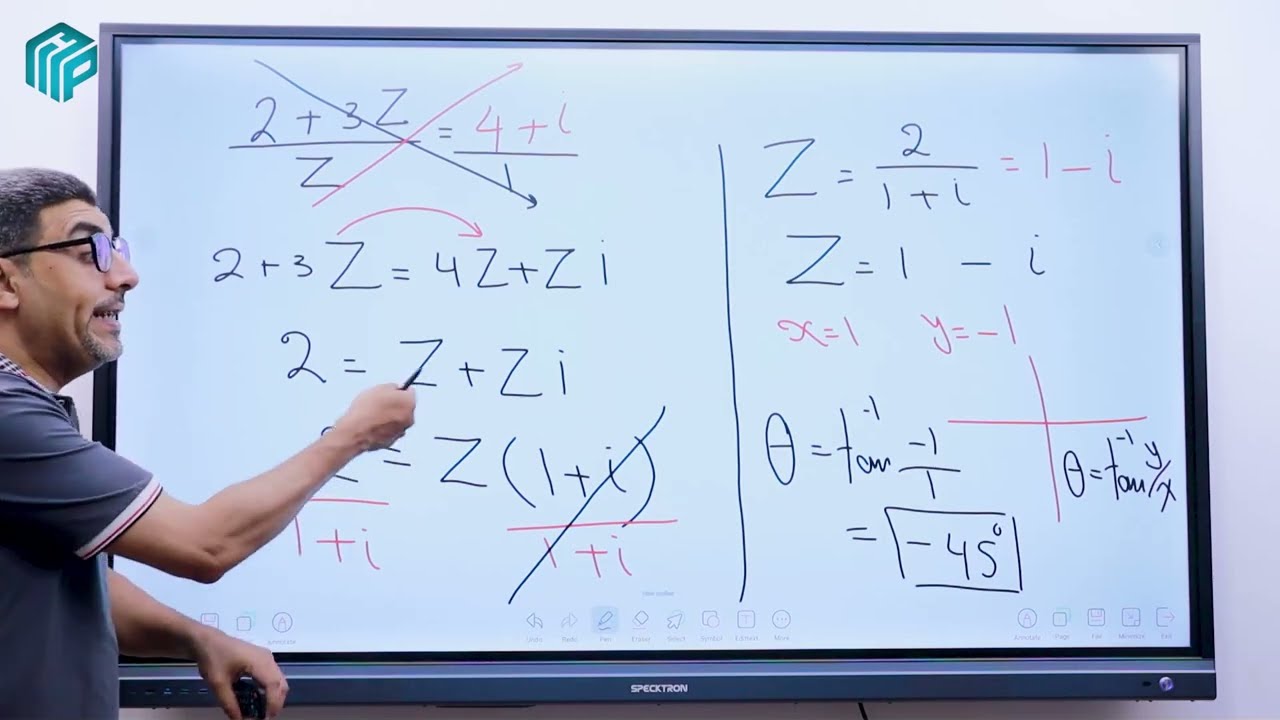 HMP
(2 + 3Z)/Z = (4 + i)/1
2 + 3Z = 4Z + Z i
2 = Z + Z i
= Z (1 + i)
1 + i
1 + i
Z = 2/(1 + i) = 1 - i
Z = 1 - i
x = 1 y = -1
θ = tan⁻¹ -1/1
θ = tan⁻¹ y/x
= -45°
Annotate
Undo Redo Pen Eraser Select Symbol More
Annotate Page File Minimize Exit
SPECKTRON